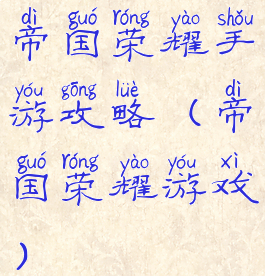 dì guó róng yào shǒu
帝国荣耀手
yóu gōng lüè dì
游攻略(帝
guó róng yào yóu xì
国荣耀游戏
)